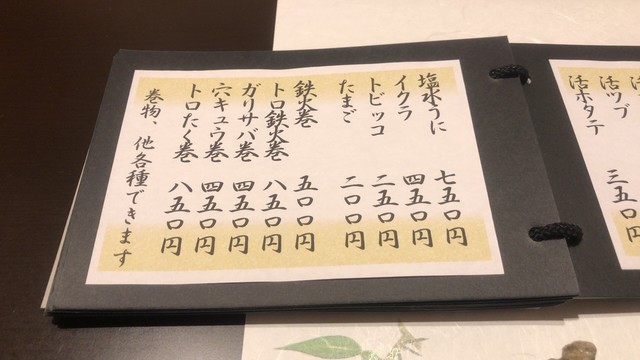 活ツブ
活ホタテ 三五〇円
塩水うに 七五〇円
イクラ 四五〇円
トビッコ 二五〇円
たまご 二〇〇円
鉄火巻 五〇〇円
トロ鉄火巻 八五〇円
ガリサバ巻 四五〇円
穴キュウ巻 四五〇円
トロたく巻 八五〇円
巻物、他各種できます